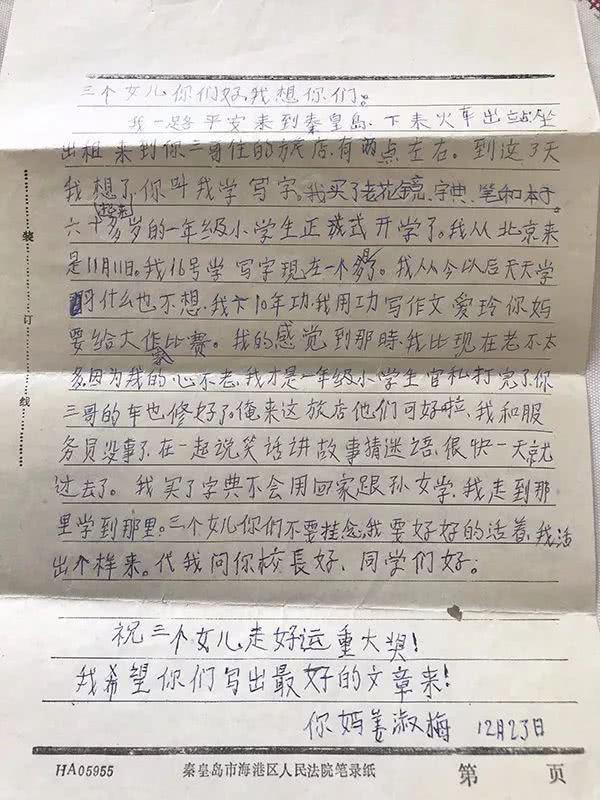 三个女儿你们好,我想你们。
我一路平安来到秦皇岛.下来火车出站坐
出租来到你三哥住的旅店.有两点左右。到这了天
我想了.你叫我学写字。我买了老花镜.字典.笔和本子。
六十多岁的一年级小学生正式开学了。我从北京来
是11月11日。我16号学写字现在一个多月了。我从今以后天天学
习什么也不想.我下10年功.我用功写作文爱玲你妈
要给大作家比赛。我的感觉到那時.我比现在老不太
多因为我的心不老.我才是一年级小学生官私打完了你
三哥的车也修好了。俺来这放店他们可好啦、我和服
务员没事了.在一起说笑话讲故事猜迷语.很快一天就
过去了。我买了字典不会用回家跟孙女学.我走到那
里学到那里。三个女儿你们不要挂念.我要好好的活着.我活
出个样来。代我问你校長好、同学们好。
祝三个女儿走好运重大奖!
我希望你们写出最好的文章来!
你妈姜淑梅 12月23日
装
订
线
HA05955 秦皇岛市海港区人民法院笔录纸 第 页